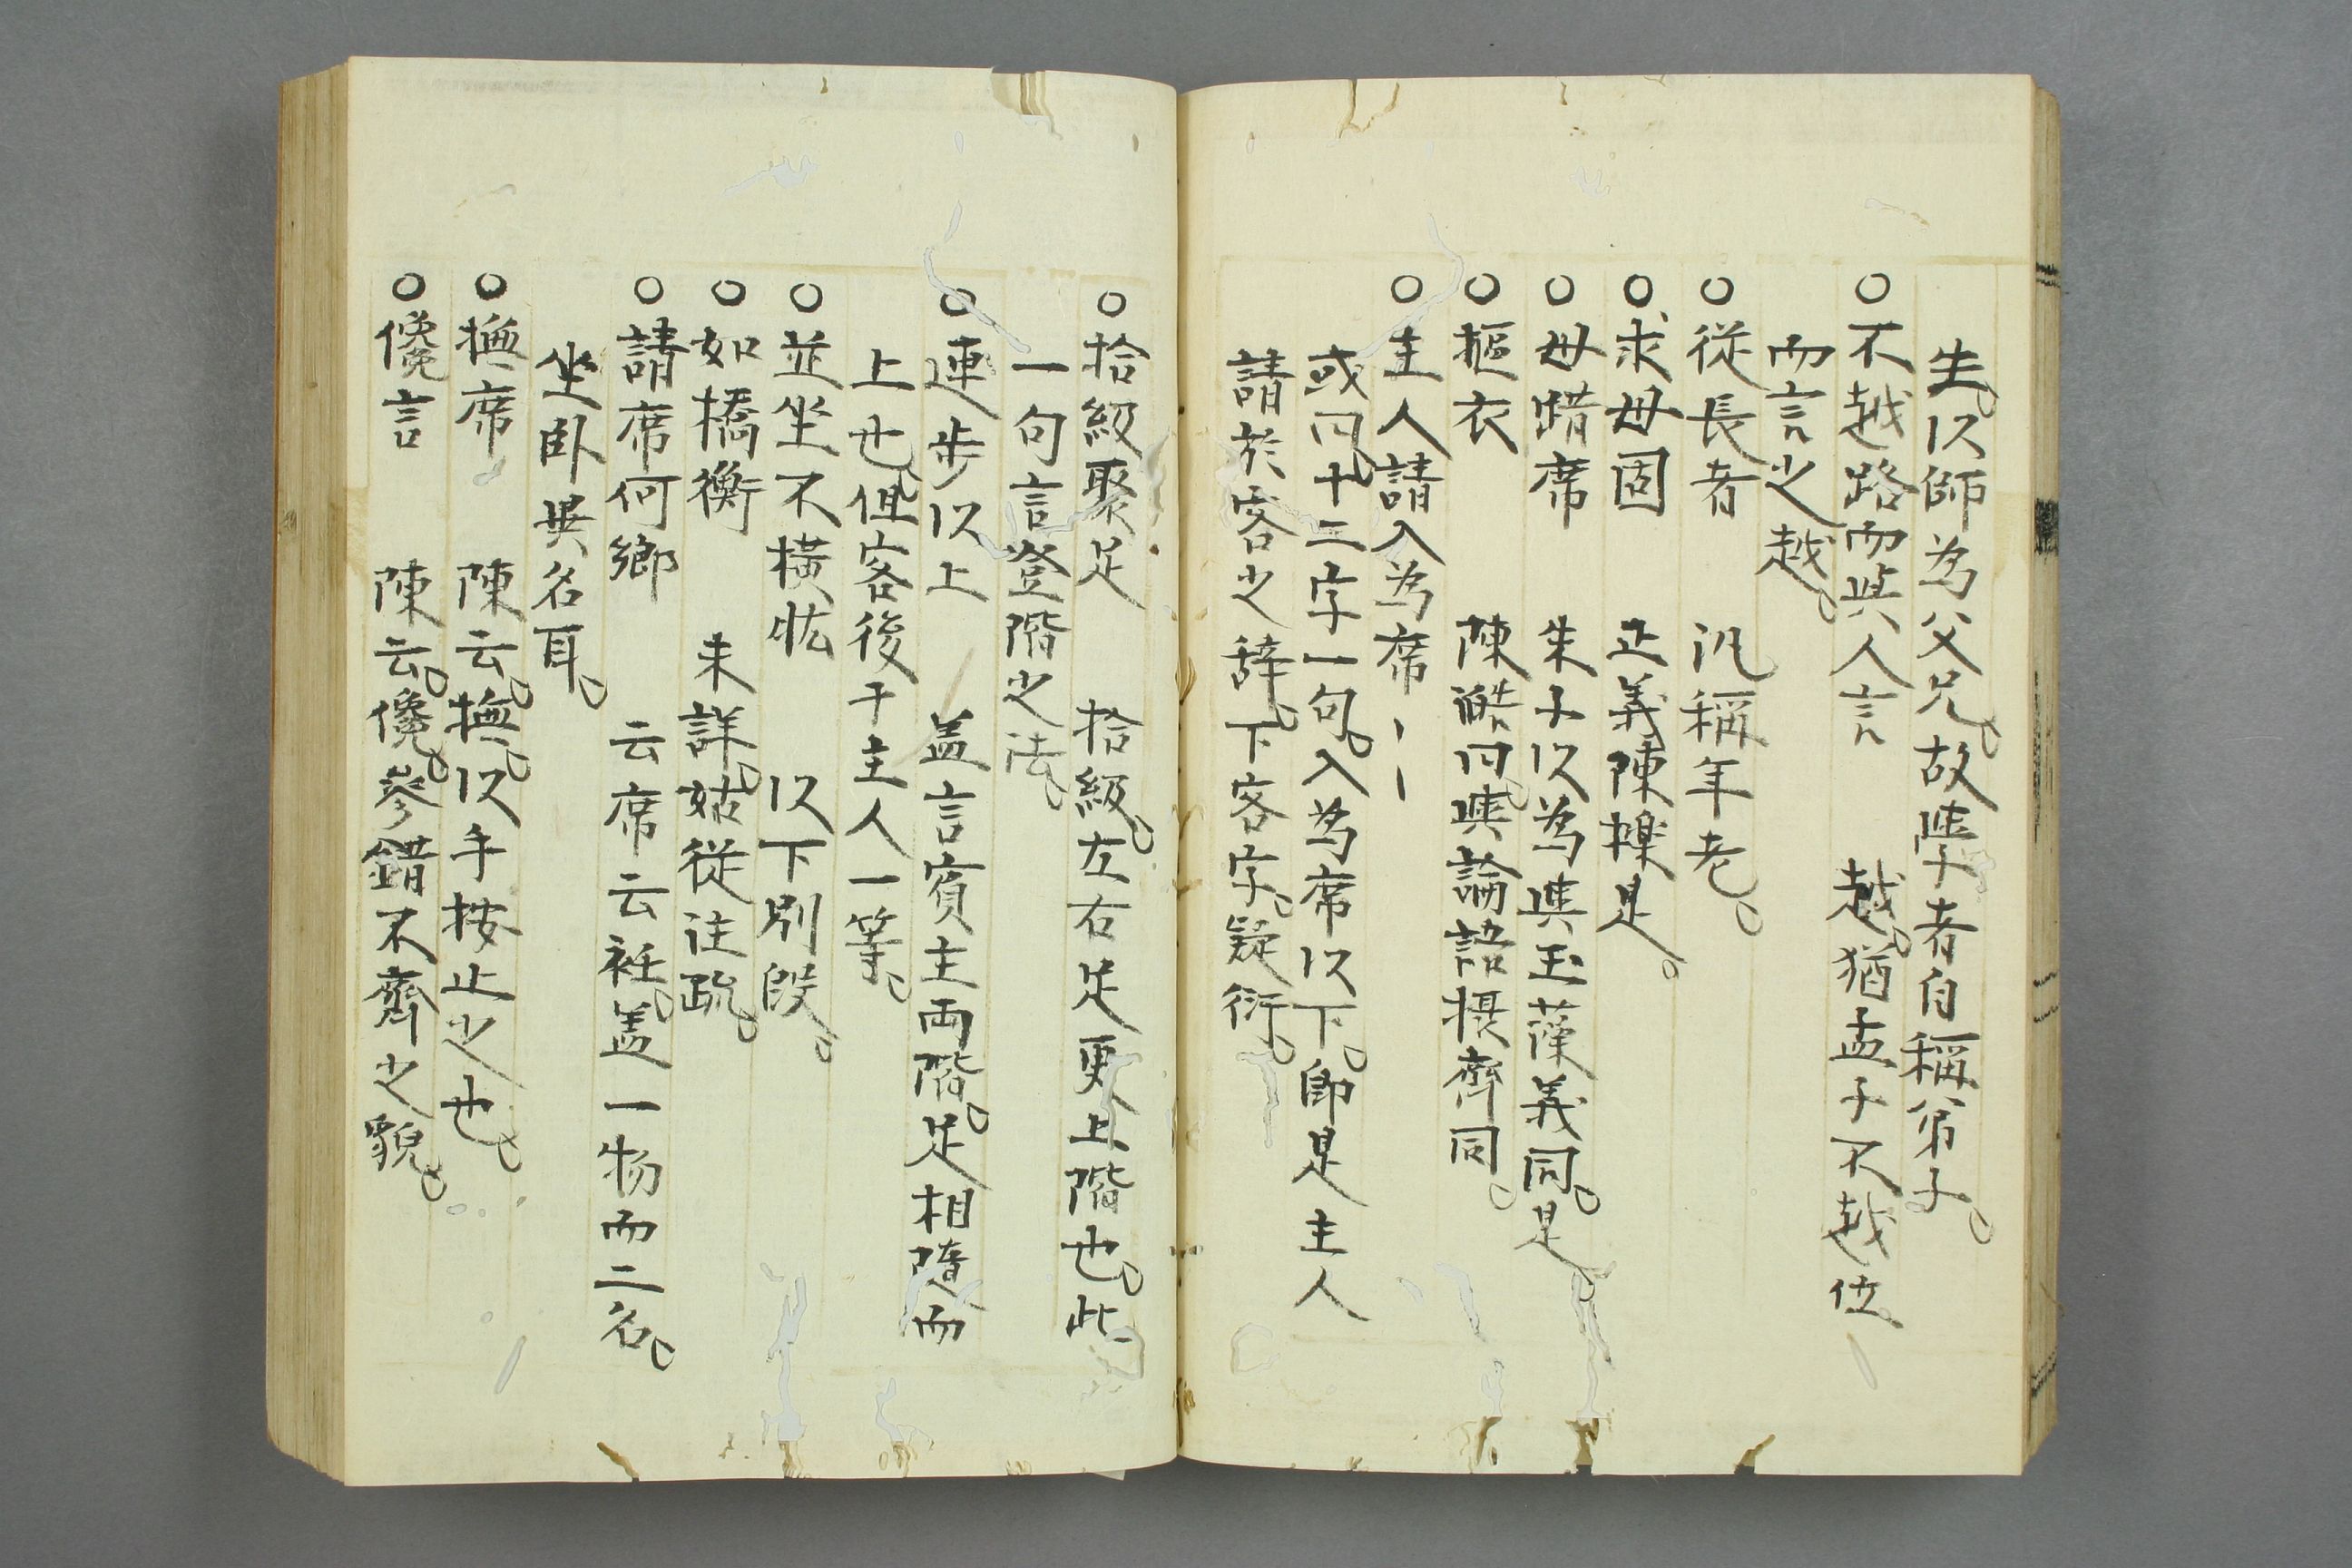 生。以師為父兄。故學者自稱弟子。
○不越路而與人言　越。猶孟子不越位
而言之越。
○從長者　汎稱年老。
○求毋固　正義陳櫟是。
○毋踖席　朱子以為與玉藻義同。是。
○摳衣　陳澔曰。與論語摂齊同。
○主人請入為席――
或曰。十二字一句。入為席以下。即是主人
請於客之辞。下客字。疑衍。
○拾級聚足　拾級。左右足更上階也。此
一句言登階之法。
○連步以上　蓋言賓主両階。足相隨而
上也。但客後于主人一等。
○並坐不横肱　以下別段。
○如橋衡　未詳。姑從注疏。
○請席何鄉　云席云衽。蓋一物而二名。
坐臥異名耳。
○撫席　陳云。撫。以手按止之也。
○儳言　陳云。儳。參錯不齊之貌。